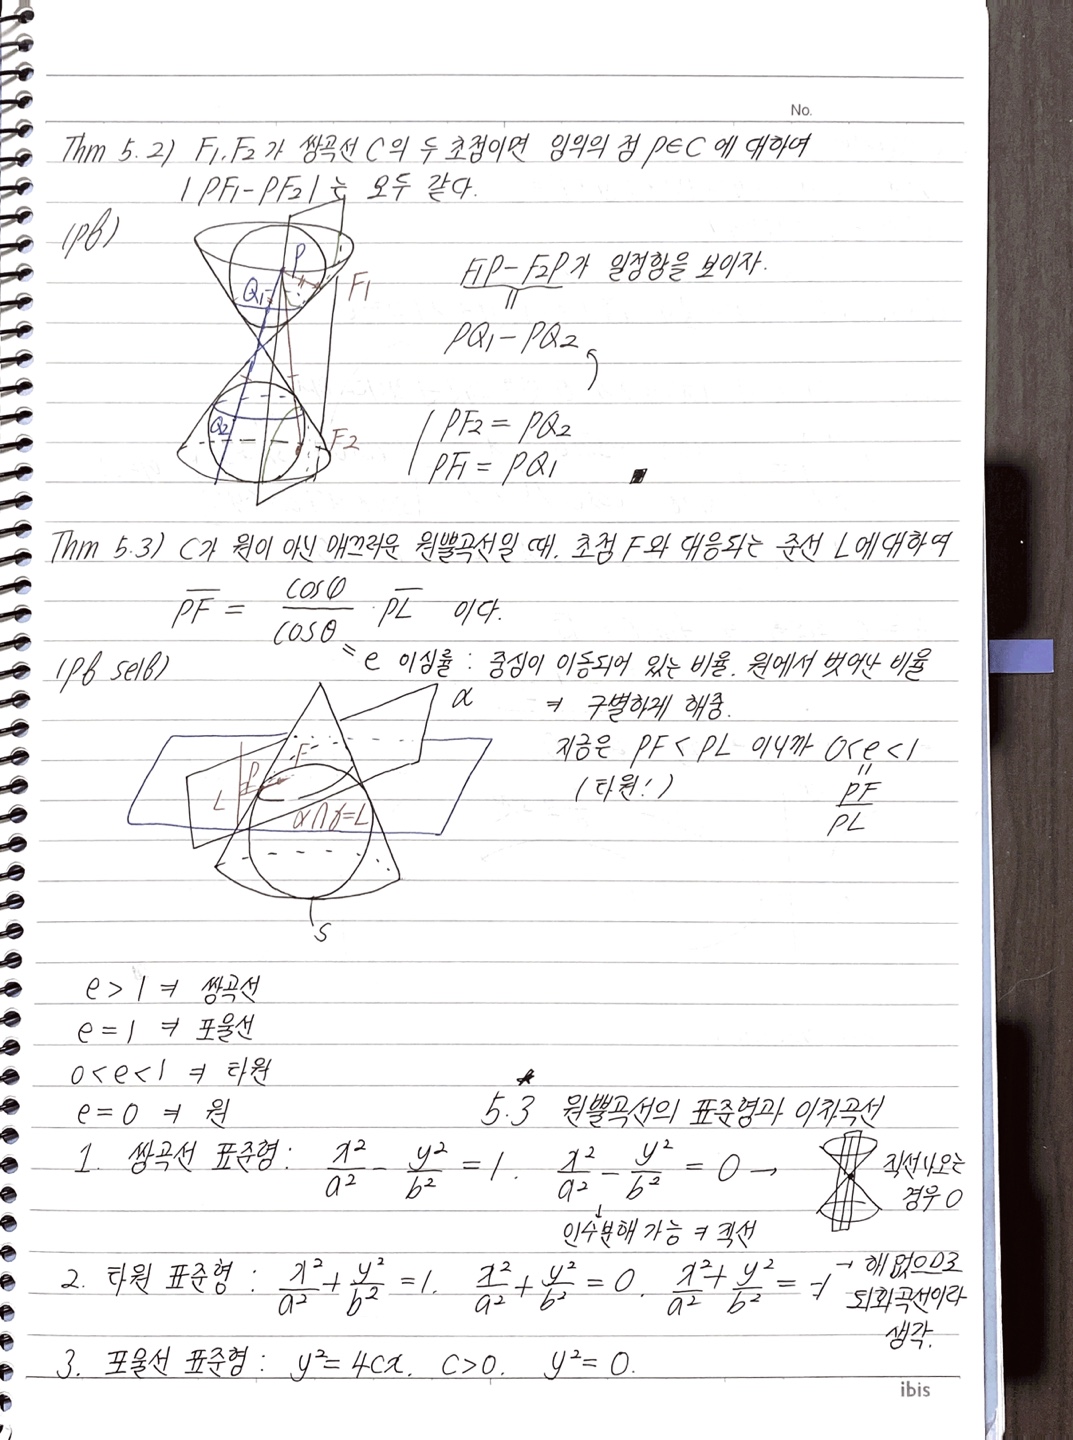 No.
Thm 5.2) F1, F2가 쌍곡선 C의 두 초점이면 임의의 점 P∈C에 대하여
|PF1-PF2|는 모두 같다.
(pf)
P
Q1
F1
Q2
F2
F1P-F2P가 일정함을 보이자.
=
PQ1-PQ2
PF2=PQ2
PF1=PQ1
Thm 5.3) C가 원이 아닌 매끄러운 원뿔곡선일 때, 초점 F와 대응되는 준선 L에 대하여
PF = cosφ/cosθ · PL 이다.
= e 이심률 : 중심이 이동되어 있는 비율. 원에서 벗어난 비율
⇒ 구별하게 해줌.
(pf self)
α
F
P
L
α∩γ=L
S
지금은 PF<PL 이니까 0<e<1
(타원!)
=
PF/PL
e>1 ⇒ 쌍곡선
e=1 ⇒ 포물선
0<e<1 ⇒ 타원
e=0 ⇒ 원
5.3 원뿔곡선의 표준형과 이차곡선
1. 쌍곡선 표준형: x²/a² - y²/b² = 1. x²/a² - y²/b² = 0 → 직선나오는
경우 0
↓
인수분해 가능 ⇒ 직선
2. 타원 표준형 : x²/a² + y²/b² = 1. x²/a² + y²/b² = 0. x²/a² + y²/b² = -1 → 해 없으므로
퇴화곡선이라
생각.
3. 포물선 표준형 : y²=4cx. c>0. y²=0.
ibis